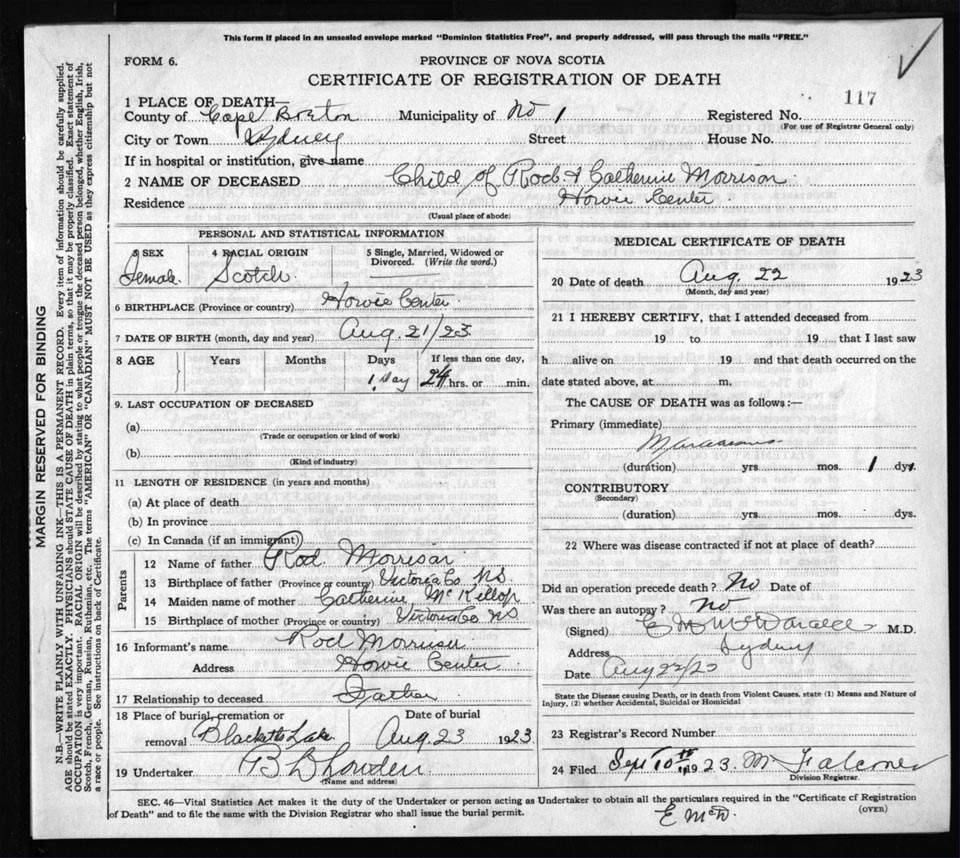 This form if placed in an unsealed envelope marked "Dominion Statistics Free", and properly addressed, will pass through the mails "FREE."
FORM 6.
PROVINCE OF NOVA SCOTIA
CERTIFICATE OF REGISTRATION OF DEATH
117
1 PLACE OF DEATH—
County of Cape Breton Municipality of No 1 Registered No.
(For use of Registrar General only)
City or Town Sydney Street House No.
If in hospital or institution, give name
2 NAME OF DECEASED Child of Rod. & Catherine Morrison
Residence Howie Center
(Usual place of abode)
PERSONAL AND STATISTICAL INFORMATION
3 SEX 4 RACIAL ORIGIN 5 Single, Married, Widowed or Divorced. (Write the word.)
Female Scotch
6 BIRTHPLACE (Province or country) Howie Center
7 DATE OF BIRTH (month, day and year) Aug. 21/23
8 AGE Years Months Days If less than one day,
1 Day 24 hrs. or min.
9. LAST OCCUPATION OF DECEASED
(a)
(Trade or occupation or kind of work)
(b)
(Kind of industry)
11 LENGTH OF RESIDENCE (in years and months)
(a) At place of death
(b) In province
(c) In Canada (if an immigrant)
Parents
12 Name of father Rod. Morrison
13 Birthplace of father (Province or country) Victoria Co NS
14 Maiden name of mother Catherine McKillop
15 Birthplace of mother (Province or country) Victoria Co NS
16 Informant's name Rod Morrison
Address Howie Center
17 Relationship to deceased Father
18 Place of burial, cremation or removal Blacketts Lake
Date of burial Aug. 23 1923.
19 Undertaker
(Name and address)
MEDICAL CERTIFICATE OF DEATH
20 Date of death Aug. 22 1923
(Month, day and year)
21 I HEREBY CERTIFY, that I attended deceased from
19 to 19 that I last saw
h alive on 19 and that death occurred on the
date stated above, at m.
The CAUSE OF DEATH was as follows:—
Primary (immediate)
(duration) yrs. mos. 1 dys.
CONTRIBUTORY
(Secondary)
(duration) yrs. mos. dys.
22 Where was disease contracted if not at place of death?
Did an operation precede death? No Date of
Was there an autopsy? No
(Signed) M.D.
Address Sydney
Date Aug 22/23
State the Disease causing Death, or in death from Violent Causes, state (1) Means and Nature of
Injury, (2) whether Accidental, Suicidal or Homicidal
23 Registrar's Record Number
24 Filed Sept 10th 1923. M Falconer
Division Registrar.
SEC. 46—Vital Statistics Act makes it the duty of the Undertaker or person acting as Undertaker to obtain all the particulars required in the "Certificate of Registration
of Death" and to file the same with the Division Registrar who shall issue the burial permit.
(OVER)
E McD.
MARGIN RESERVED FOR BINDING
N.B.—WRITE PLAINLY WITH UNFADING INK—THIS IS A PERMANENT RECORD. Every item of information should be carefully supplied.
AGE should be stated EXACTLY. PHYSICIANS should STATE CAUSE OF DEATH in plain terms, so that it may be properly classified. Exact statement of
OCCUPATION is very important. RACIAL ORIGIN will be described by stating to what people or tongue the deceased person belonged, whether English, Irish,
Scotch, French, German, Russian, Ruthenian, etc. The terms "AMERICAN" OR "CANADIAN" MUST NOT BE USED as they express citizenship but not
a race or people. See instructions on back of Certificate.